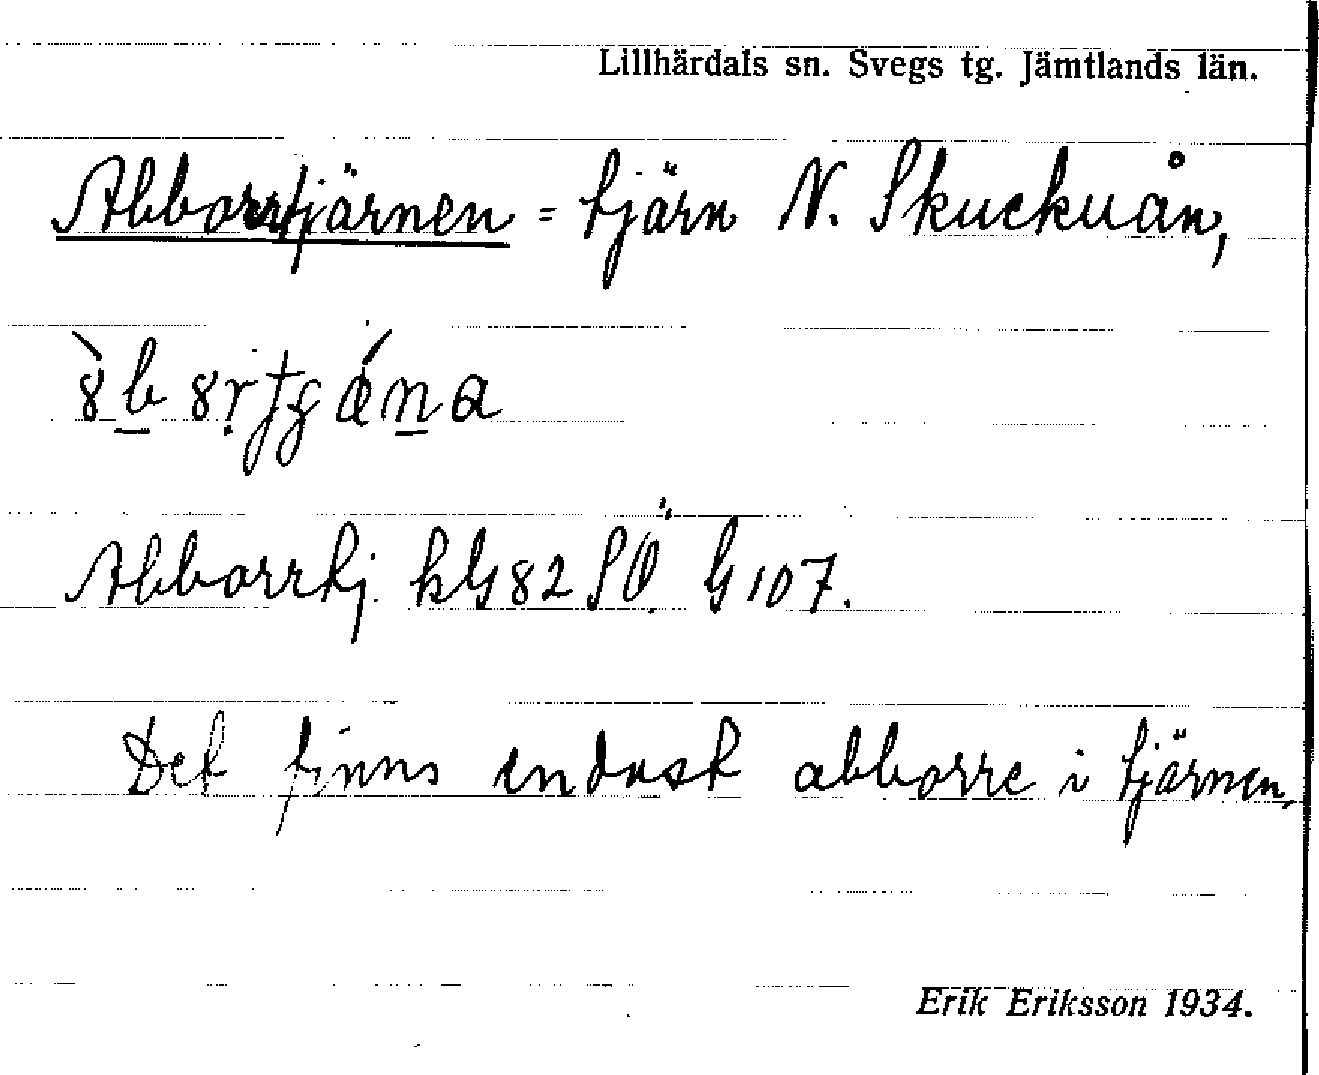 Lillhärdals sn. Svegs tg. Jämtlands län.
Abborrtjärnen = tjärn N. Skuckuån,
Abborrtj. kG82SÖ. G107.
Det finns endast abborre i tjärnen.
Erik Eriksson 1934.